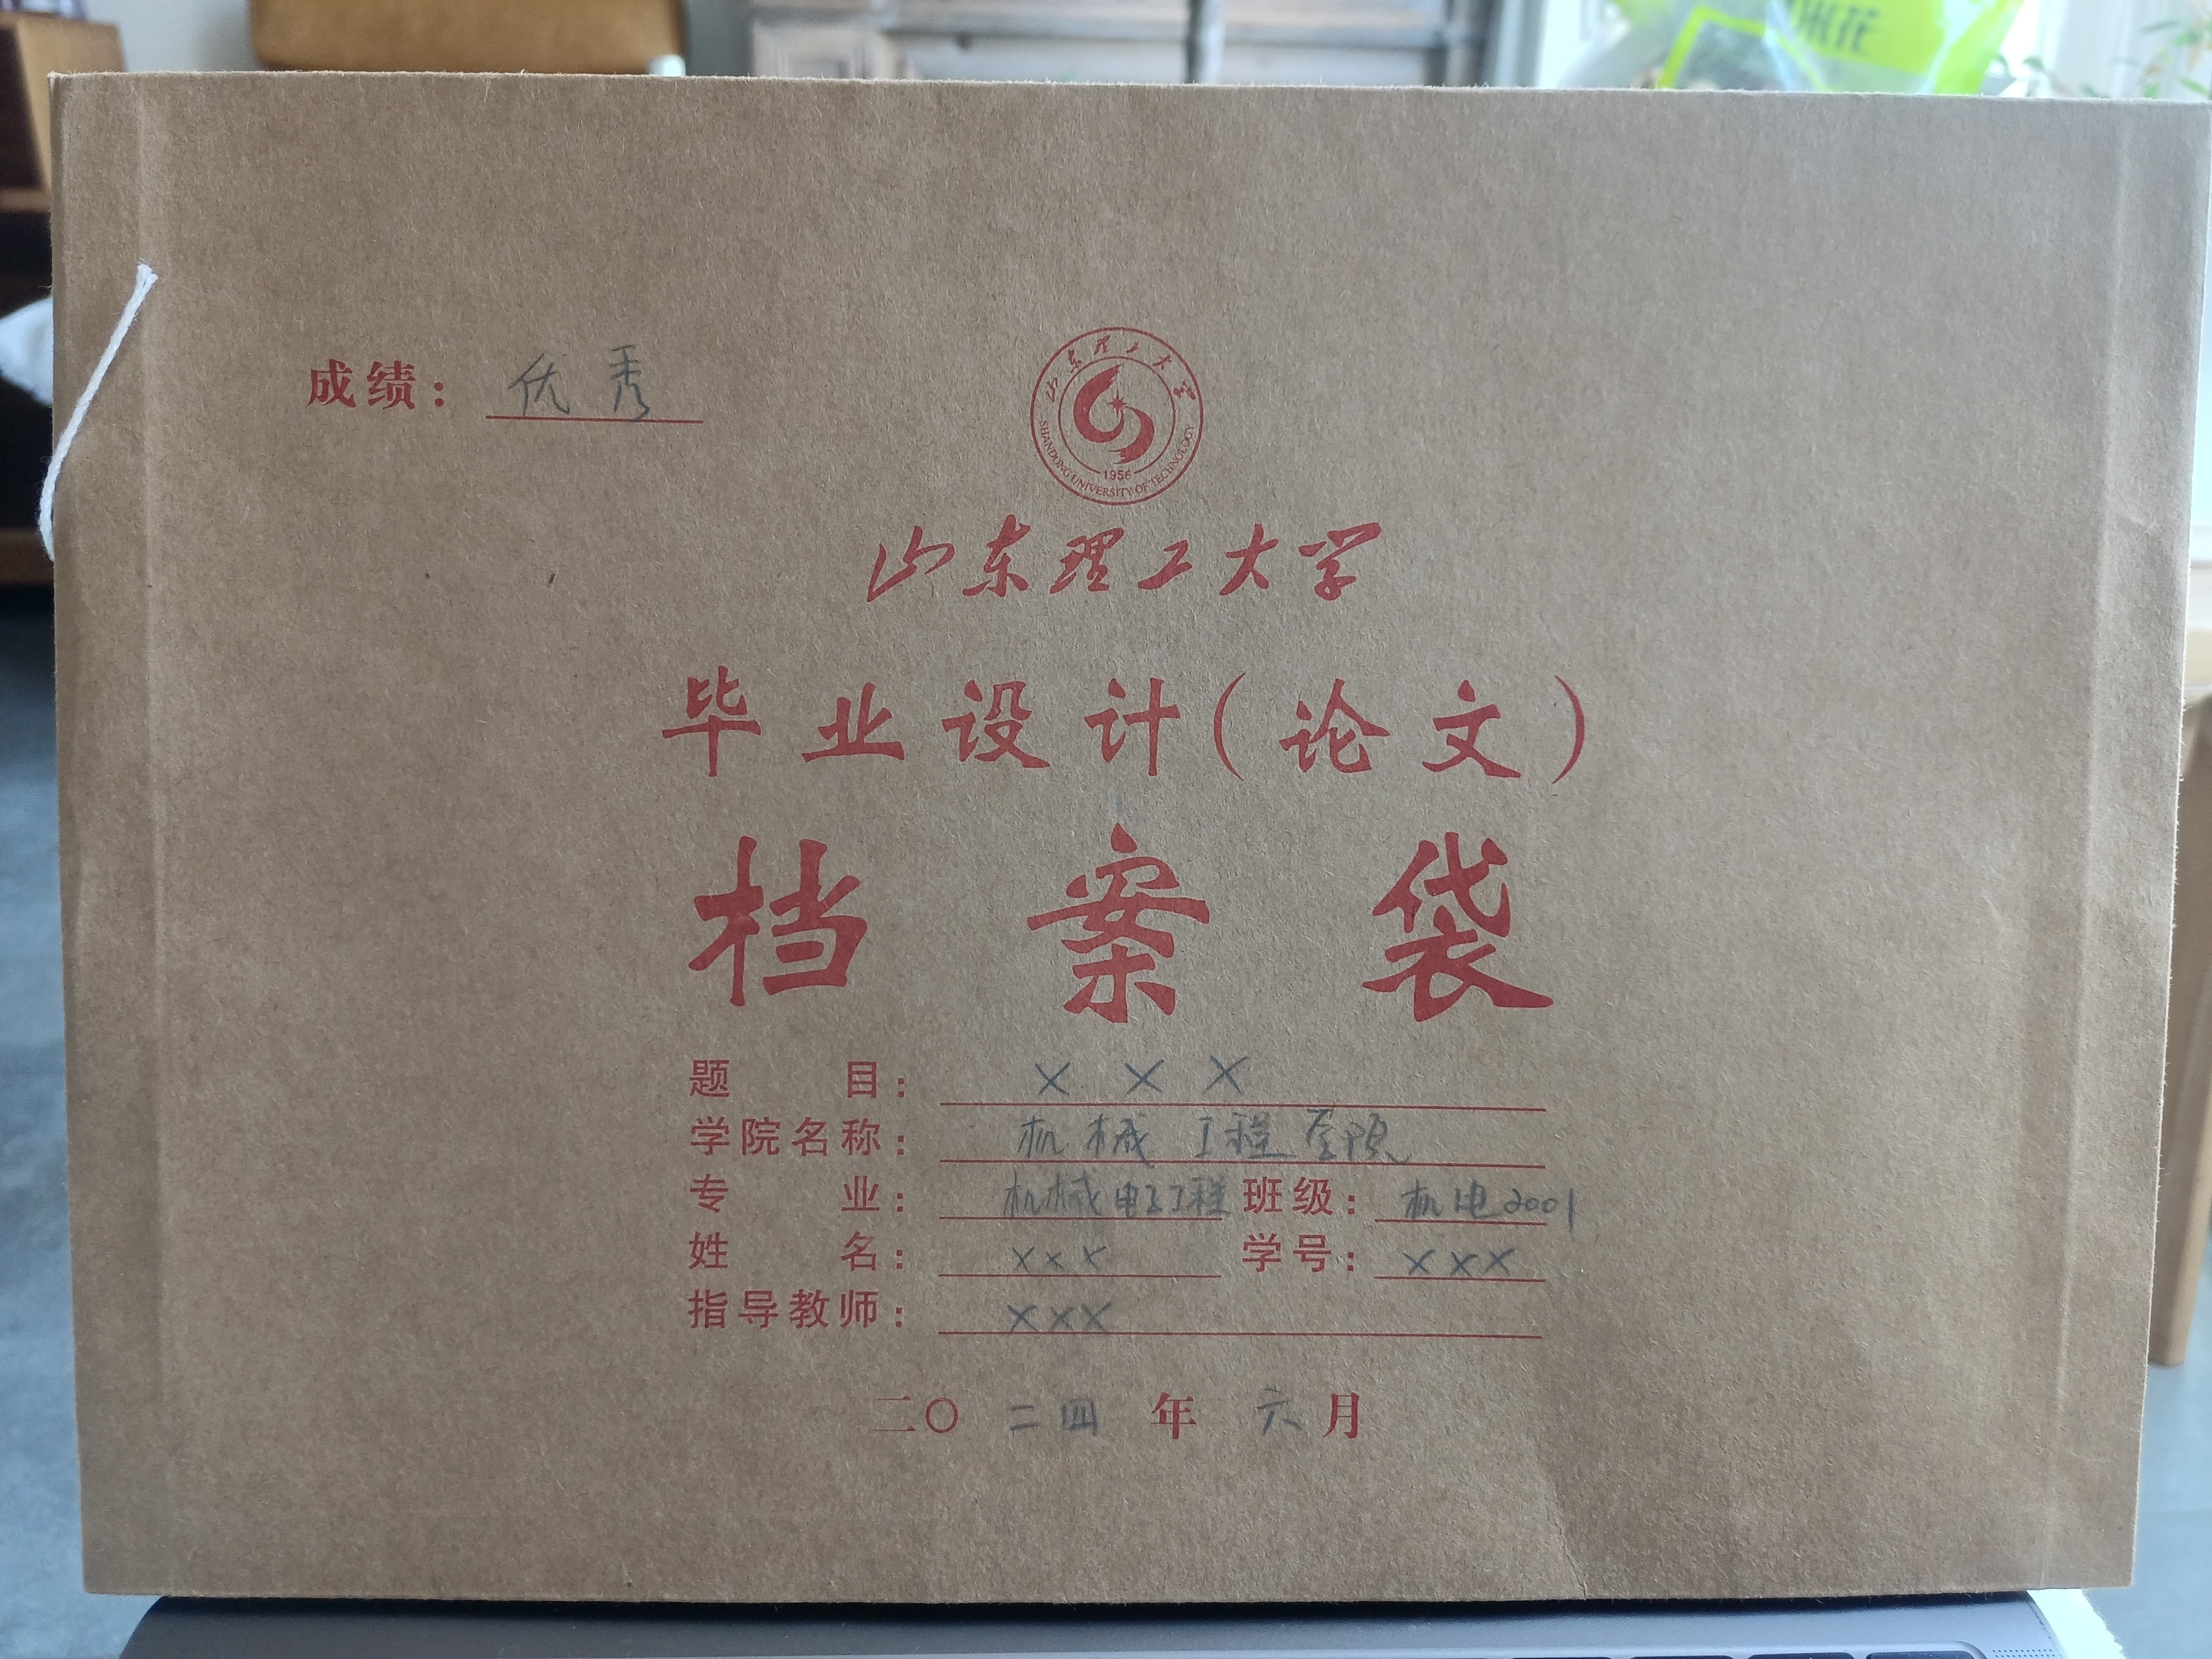 米花
成绩： 优秀
山东理工大学
SHANDONG UNIVERSITY OF TECHNOLOGY
1956
山东理工大学
毕业设计（论文）
档案袋
题目： ×××
学院名称： 机械工程学院
专业： 机械电子工程 班级： 机电2001
姓名： ××× 学号： ×××
指导教师： ×××
二〇二四年六月